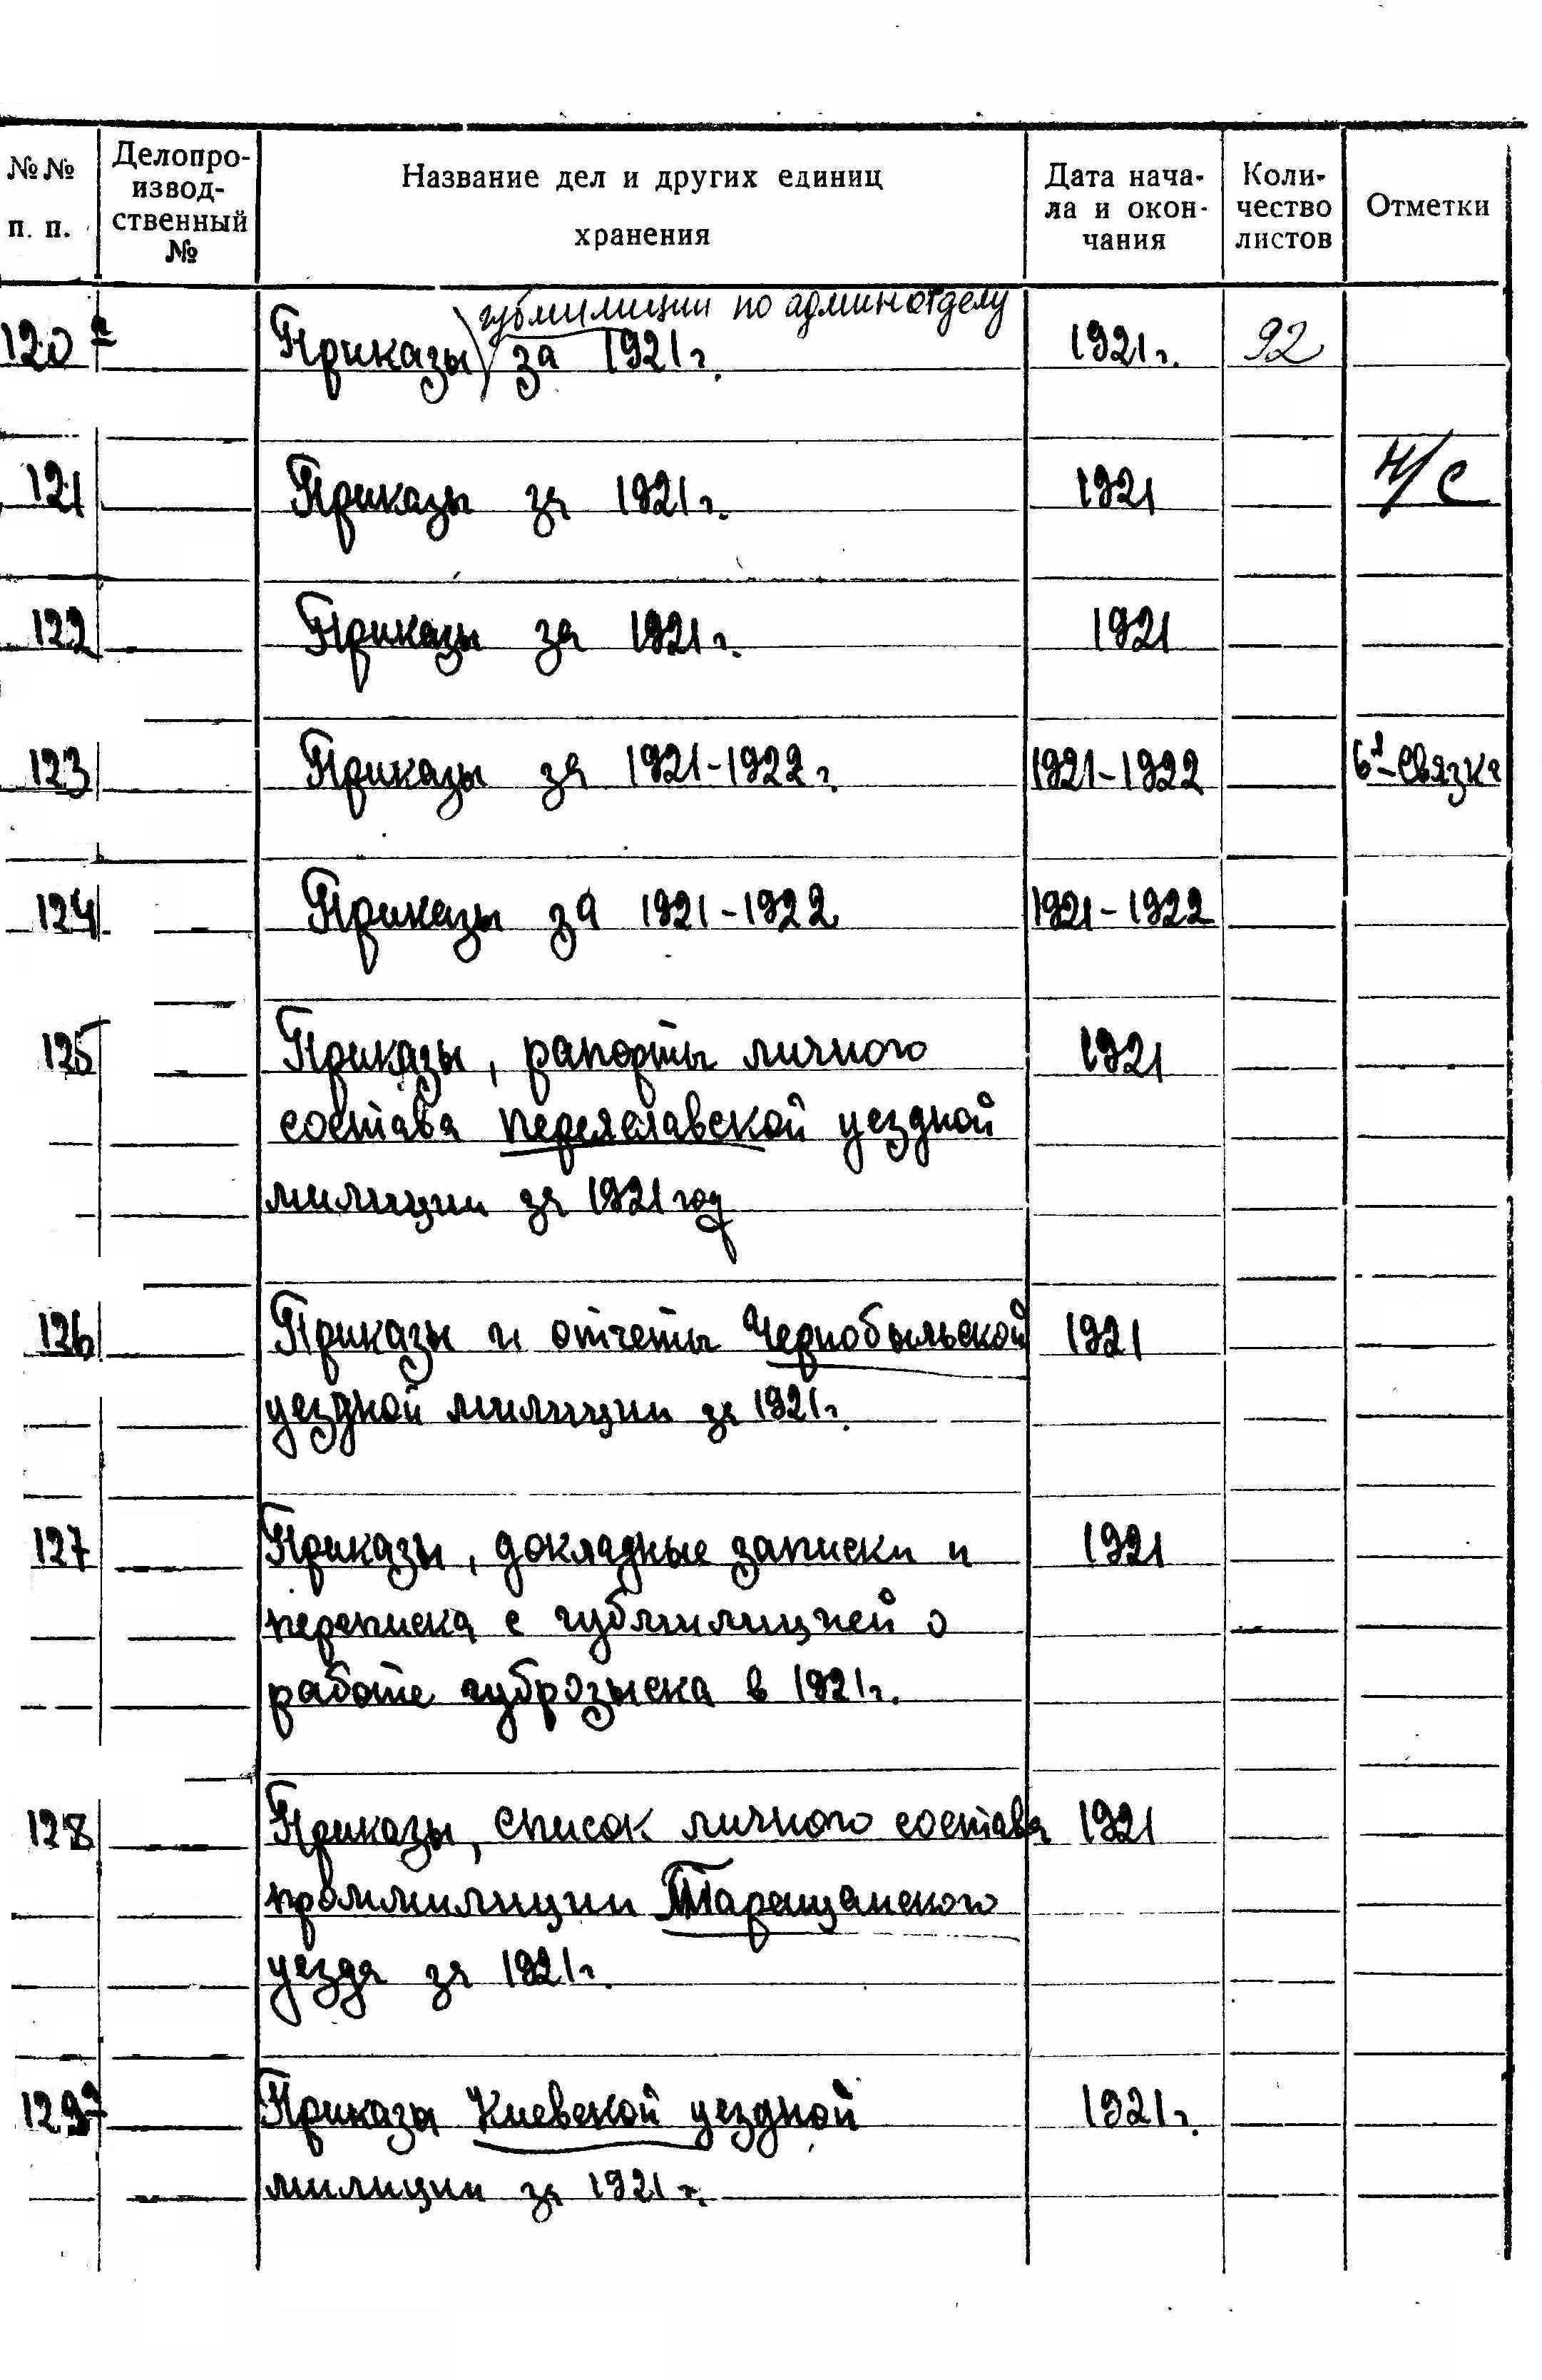 №№ п. п. Делопроизводственный № Название дел и других единиц хранения Дата начала и окончания Количество листов Отметки
губмилиции по админотделу
120 Приказы за 1921 г. 1921 г. 92
121 Приказы за 1921 г. 1921 Н/С
122 Приказы за 1921 г. 1921
123 Приказы за 1921-1922 г. 1921-1922 Связка
124 Приказы за 1921-1922 1921-1922
125 Приказы, рапорты личного 1921
состава переяславской уездной
милиции за 1921 год
126 Приказы и отчеты Чернобыльской 1921
уездной милиции за 1921 г.
127 Приказы, докладные записки и 1921
переписка с губмилицией о
работе губрозыска в 1921 г.
128 Приказы, список личного состава 1921
проммилиции Таращанского
уезда за 1921 г.
129 Приказы Киевской уездной 1921 г.
милиции за 1921 г.